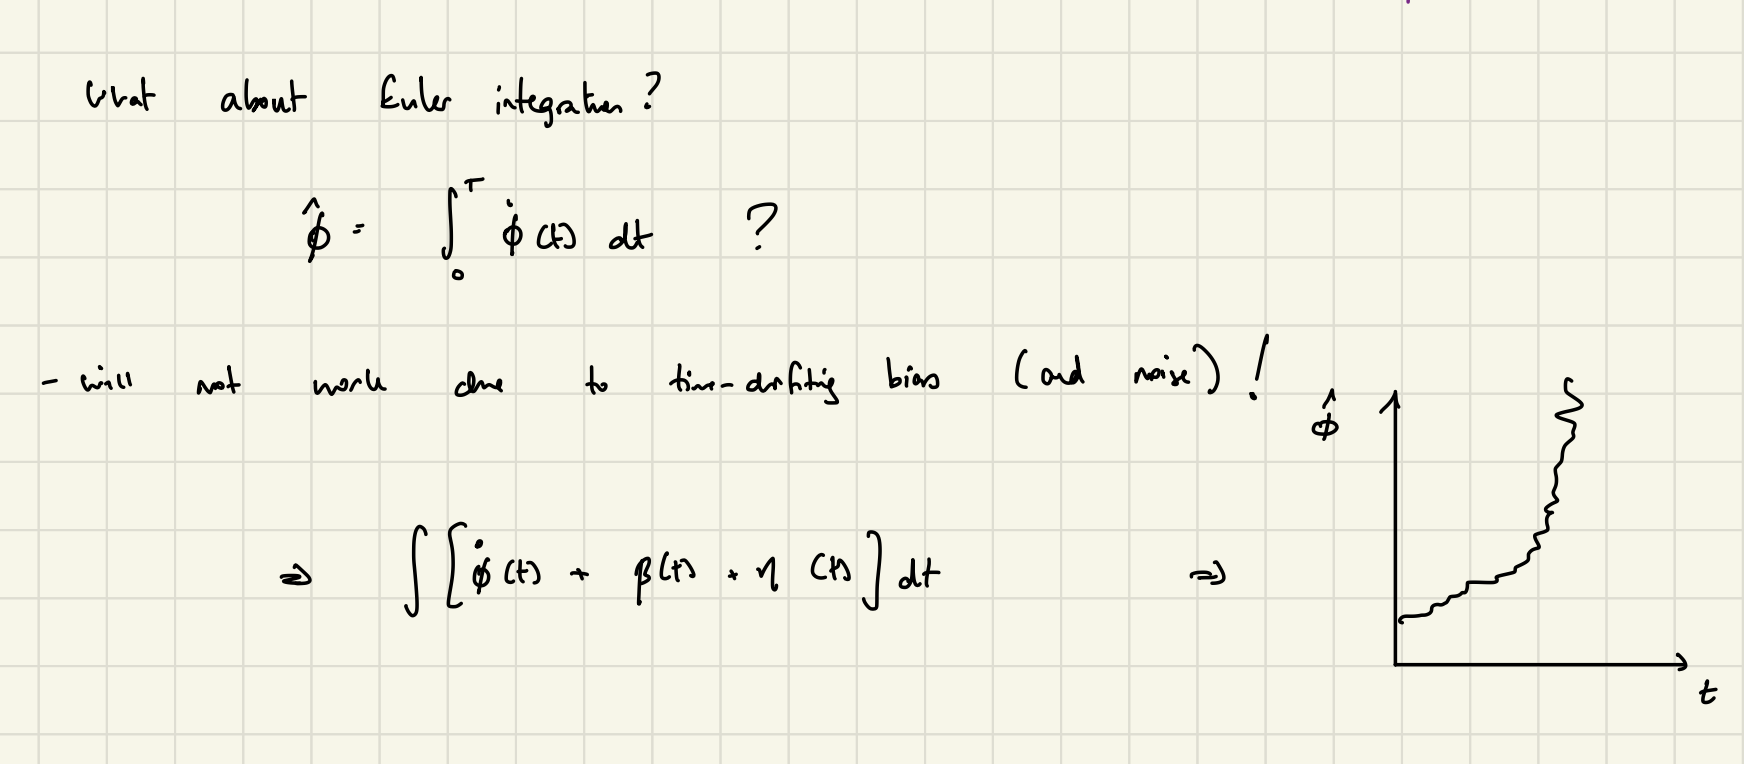 What about Euler integration?
ϕ̂ = ∫₀ᵀ ϕ̇(t) dt ?
- will not work due to time-drifting bias (and noise)!
⇒ ∫[ϕ̇(t) + β(t) + η(t)]dt ⇒
ϕ̂
t